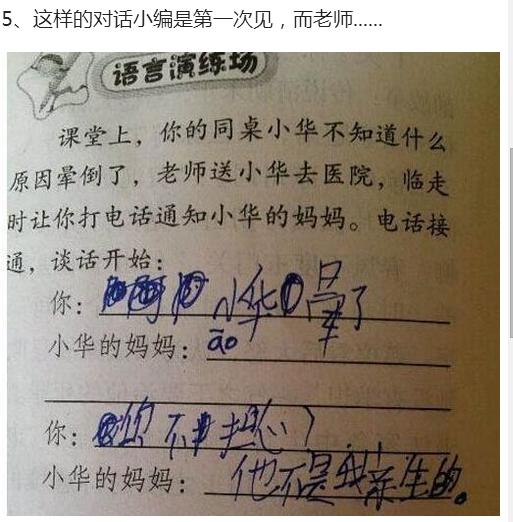 5、这样的对话小编是第一次见，而老师......
语言演练场
课堂上，你的同桌小华不知道什么
原因晕倒了，老师送小华去医院，临走
时让你打电话通知小华的妈妈。电话接
通，谈话开始：
你：小华晕了
小华的妈妈：āo
你：你不担心
小华的妈妈：他不是我亲生的。